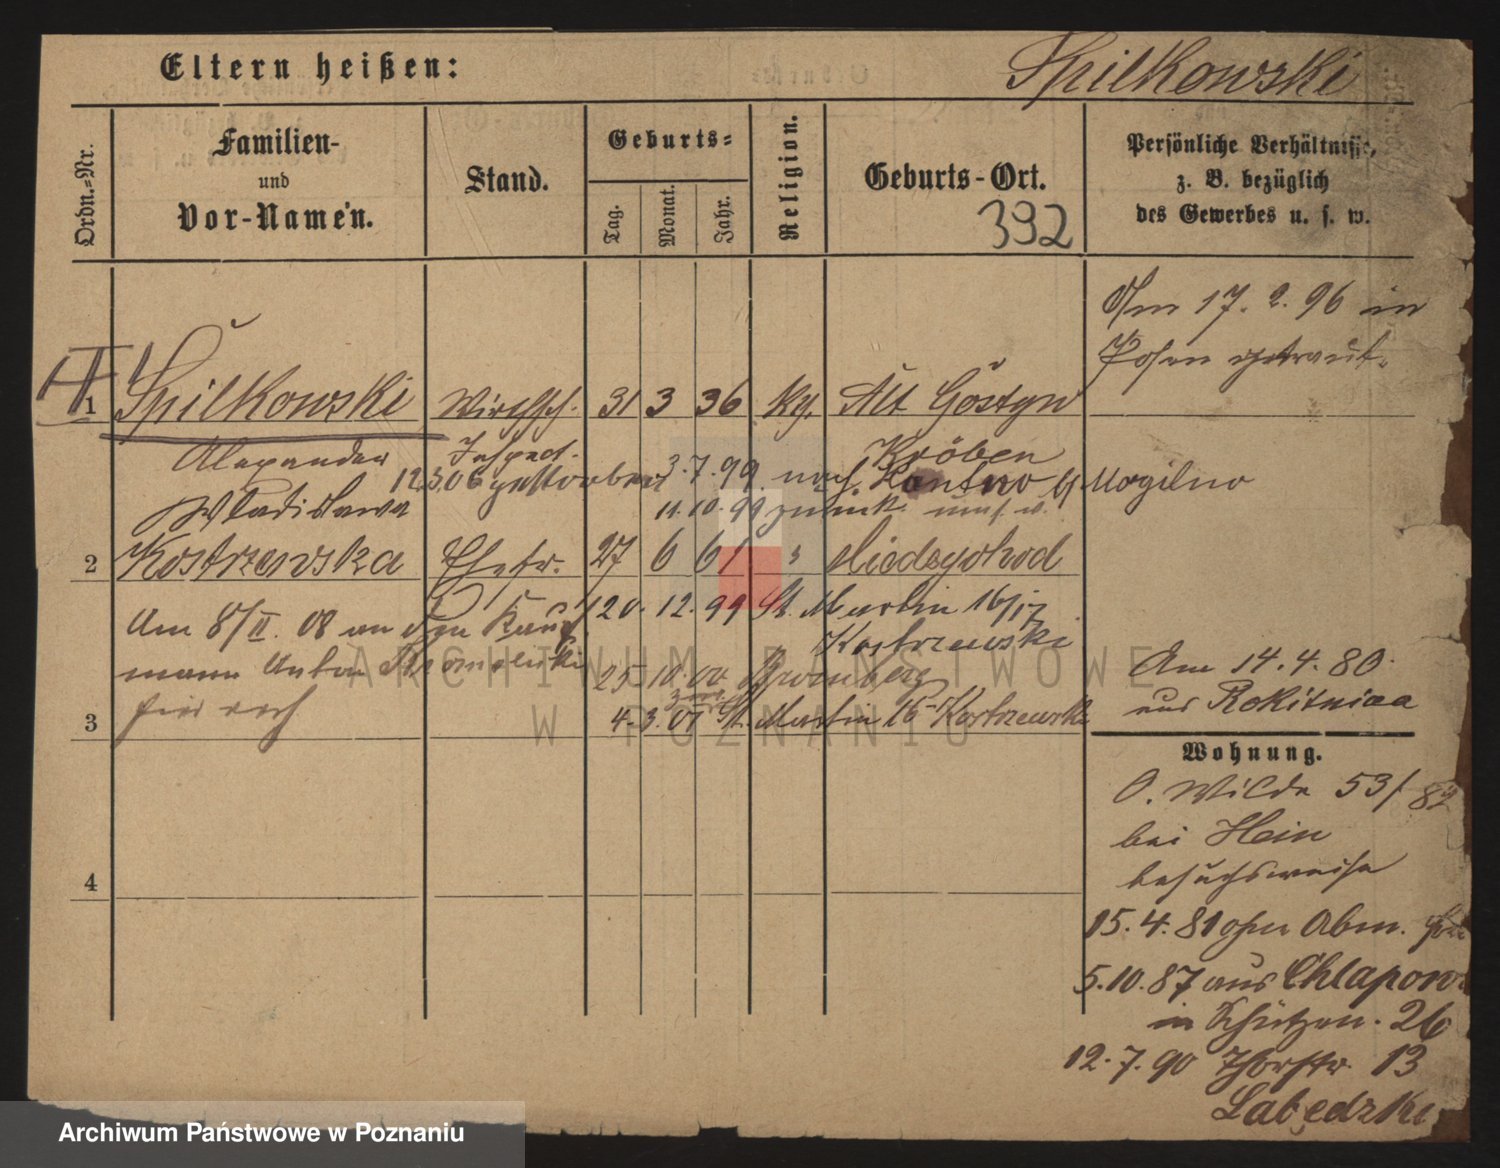 Eltern heißen:
Spilkowski
Ordn.-Nr.
Familien-
und
Vor-Namen.
Stand.
Geburts-
Tag.
Monat.
Jahr.
Religion.
Geburts-Ort.
392
Persönliche Verhältnisse,
z. B. bezüglich
des Gewerbes u. s. w.
Am 17. 2. 96 in
Posen getraut.
1 Spilkowski Wirthsch. 31 3 36 kg. Alt Gostyn
Alexander Inspect. Kröben
12.3.06 gestorben 3.7.99 nach Mogilno
Wladislawa 11.10.99 zurück
2 Kostrzewska Ehefr. 27 6 61 " Miedzychod
20. 12. 99 St. Martin 16/17
Am 8/II. 08 an den Kauf
Kostrzewski
mann Anton
25 10. 00 Bromberg
3 4. 3. 01 St. Martin 16 Kostrzewski
Am 14. 4. 80.
aus Rokitnica
Wohnung.
O. Wilda 53/82
bei Hein
besuchsweise
4
15. 4. 81 ohne Abm.
5. 10. 87 aus Chlapowo
in Schützen. 26
12. 7. 90 Thorstr. 13
Labedzki
ARCHIWUM PAŃSTWOWE
W POZNANIU
Archiwum Państwowe w Poznaniu